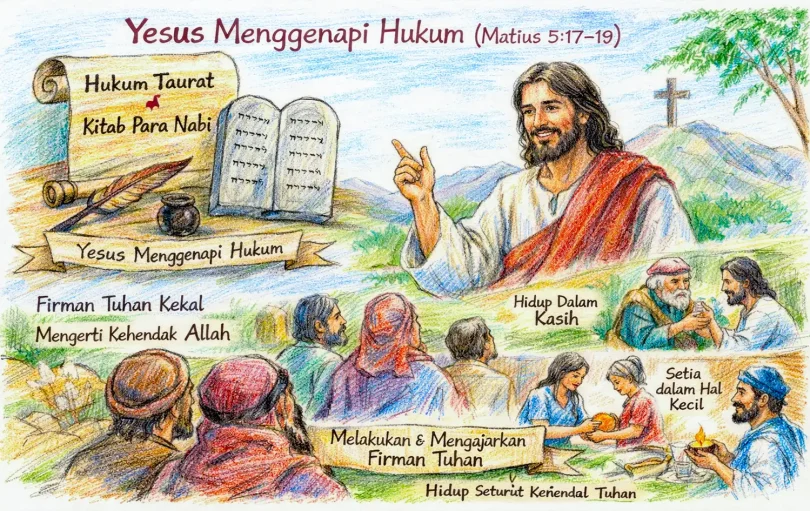 Yesus Menggenapi Hukum (Matius 5:17–19)
Hukum Taurat
Kitab Para Nabi
Yesus Menggenapi Hukum
Firman Tuhan Kekal
Mengerti Kehendak Allah
Hidup Dalam
Kasih
Setia
dalam Hal
Kecil
Melakukan & Mengajarkan
Firman Tuhan
Hidup Seturut Tuhan